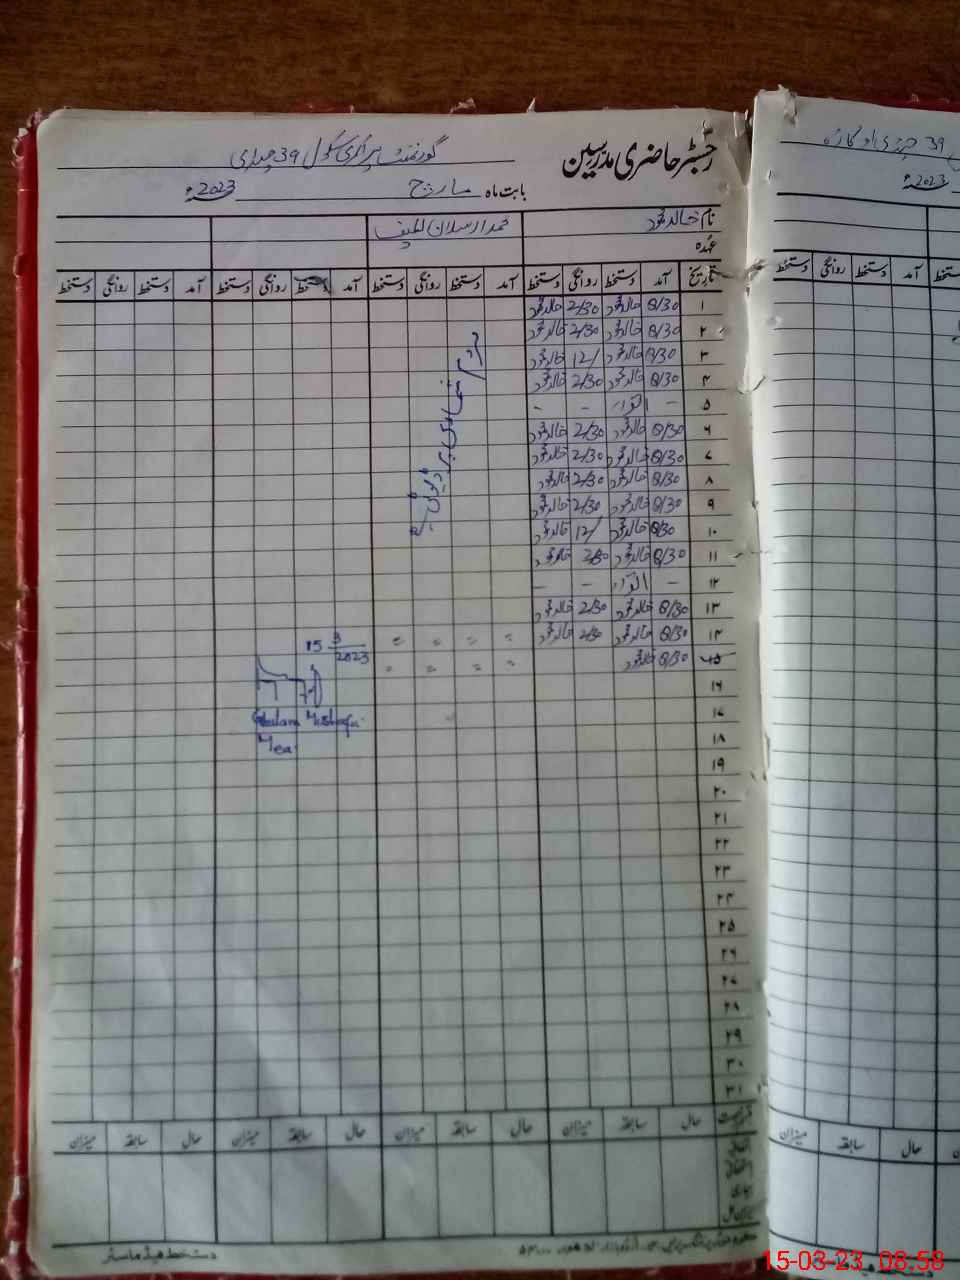 رجسٹر حاضری مدرسین
گورنمنٹ پرائمری سکول 39
بابت ماہ مارچ 2023ء
نام خالد محمود محمد ارسلان لطیف
عہدہ
تاریخ آمد دستخط روانگی دستخط آمد دستخط روانگی دستخط آمد دستخط روانگی دستخط آمد دستخط روانگی دستخط
۱ 8/30 خالد محمود 2/30 خالد محمود
۲ 8/30 خالد محمود 2/30 خالد محمود
۳ 8/30 خالد محمود 12/ خالد محمود
۴ 8/30 خالد محمود 2/30 خالد محمود
۵ - اتوار - -
۶ 8/30 خالد محمود 2/30 خالد محمود
۷ 8/30 خالد محمود 2/30 خالد محمود
۸ 8/30 خالد محمود 2/30 خالد محمود
۹ 8/30 خالد محمود 2/30 خالد محمود
۱۰ 8/30 خالد محمود 12/ خالد محمود
۱۱ 8/30 خالد محمود 2/30 خالد محمود
۱۲ - اتوار - -
۱۳ 8/30 خالد محمود 2/30 خالد محمود
۱۴ 8/30 خالد محمود 2/30 خالد محمود 〃 〃 〃 〃
۱۵ 8/30 خالد محمود 〃 〃 〃 〃
مردم شماری پر ڈیوٹی ہے
15 3/2023
Ghulam Mustafa
Mea
۱۶
۱۷
۱۸
۱۹
۲۰
۲۱
۲۲
۲۳
۲۴
۲۵
۲۶
۲۷
۲۸
۲۹
۳۰
۳۱
حال سابقہ میزان حال سابقہ میزان حال سابقہ میزان حال سابقہ میزان
اتفاقی
استحقاقی
بیماری
میزان کل
دستخط ہیڈ ماسٹر
39
2023ء
آمد دستخط روانگی دستخط
حال سابقہ میزان
15-03-23 08:58